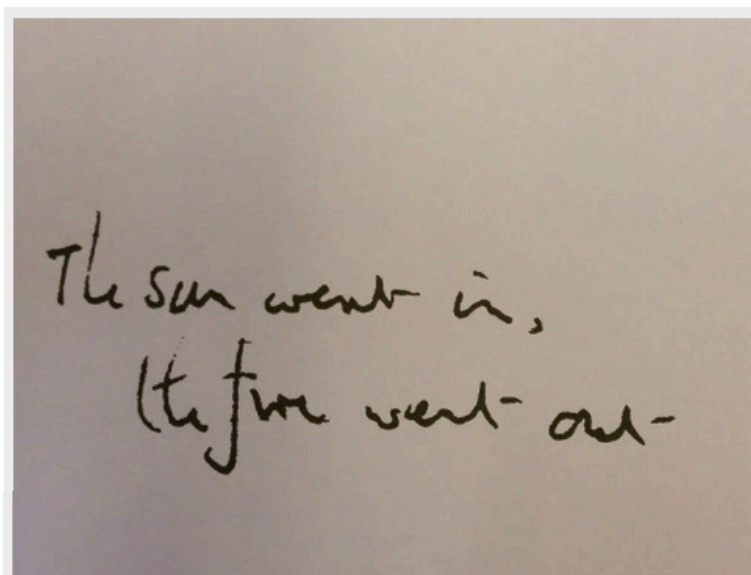 The sun went in,
the fire went out